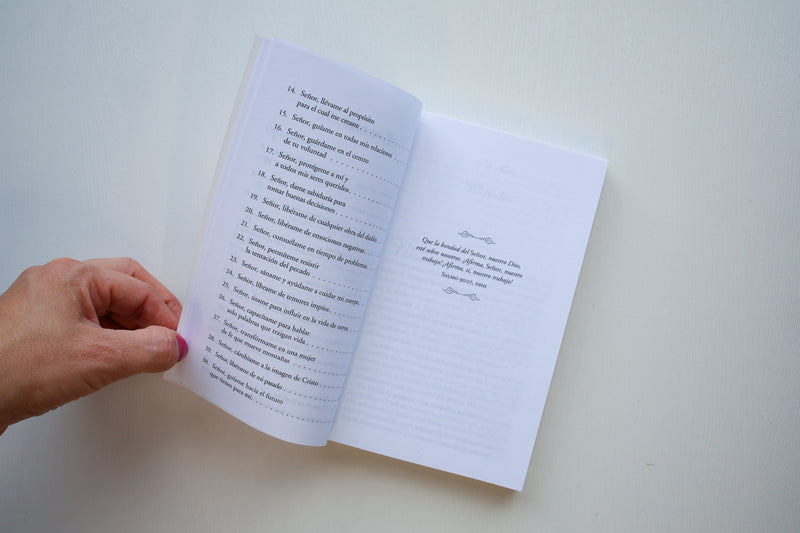 14. Señor, llévame al propósito
para el cual me creaste . . . . . . . . . .
15. Señor, guíame en todas mis relaciones
16. Señor, guárdame en el centro
de tu voluntad . . . . . . . . . . . . . .
17. Señor, protégeme a mí y
a todos mis seres queridos. . . . . . . . .
18. Señor, dame sabiduría para
tomar buenas decisiones . . . . . . . . . .
19. Señor, líbrame de cualquier obra del diablo
20. Señor, líbrame de emociones negativas. . . .
21. Señor, consuélame en tiempo de problemas
22. Señor, permíteme resistir
la tentación del pecado . . . . . . . . . .
23. Señor, sáname y ayúdame a cuidar mi cuerpo.
24. Señor, líbrame de temores impíos . . . . . .
25. Señor, úsame para influir en la vida de otros
26. Señor, capacítame para hablar
solo palabras que traigan vida . . . . . . .
27. Señor, transfórmame en una mujer
de fe que mueve montañas . . . . . . . . .
28. Señor, cámbiame a la imagen de Cristo . . . .
29. Señor, libérame de mi pasado . . . . . . . .
30. Señor, guíame hacia el futuro
que tienes para mí. . . . . . . . . . . . .
Que la bondad del Señor, nuestro Dios,
esté sobre nosotros. ¡Afirma, Señor, nuestro
trabajo! ¡Afirma, sí, nuestro trabajo!
Salmo 90:17, dhh